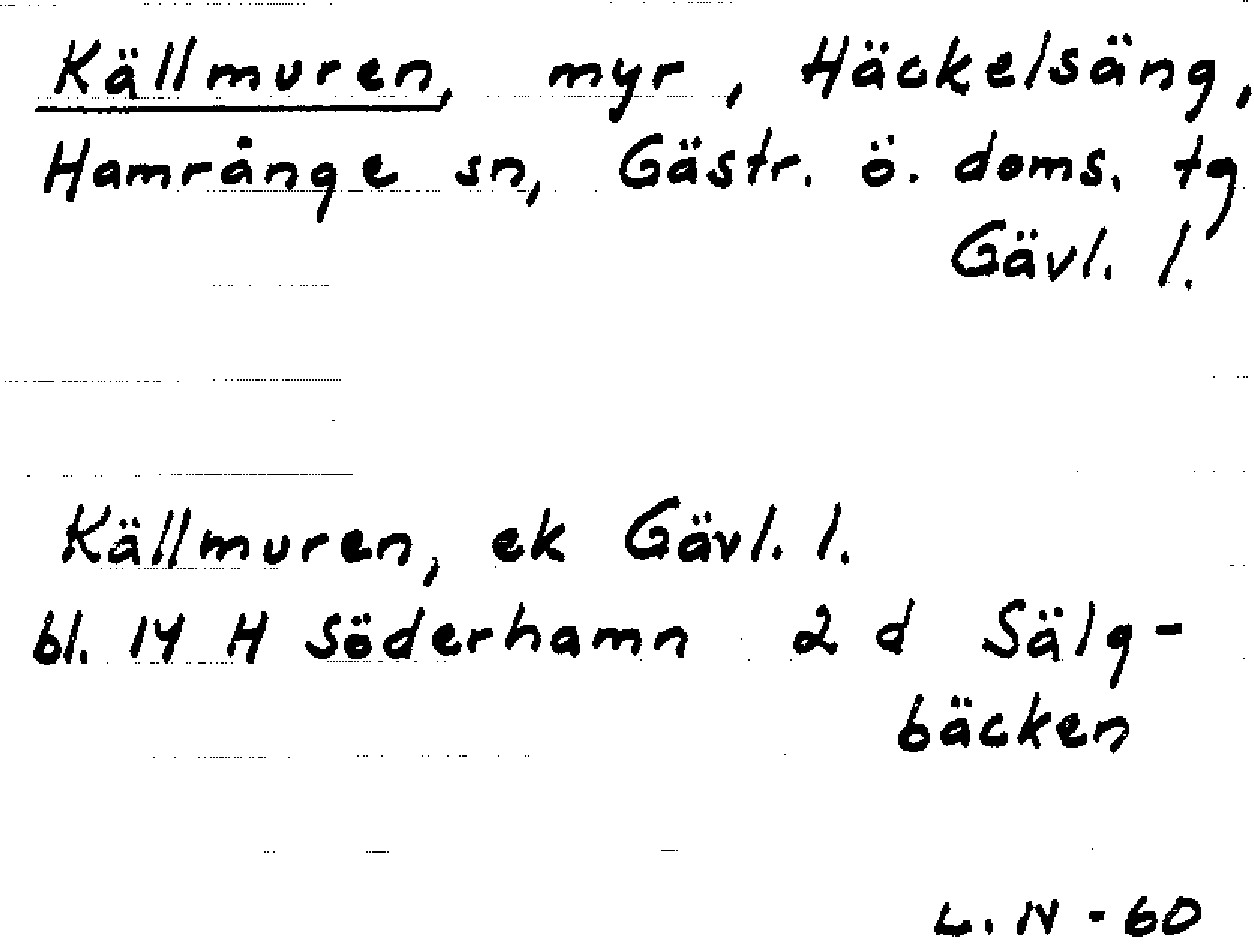 Källmuren, myr, Häckelsäng,
Hamrånge sn, Gästr. ö. doms. tg
Gävl. l.
Källmuren, ek Gävl. l.
bl. 14 H Söderhamn 2 d Sälg-
bäcken
L. N - 60